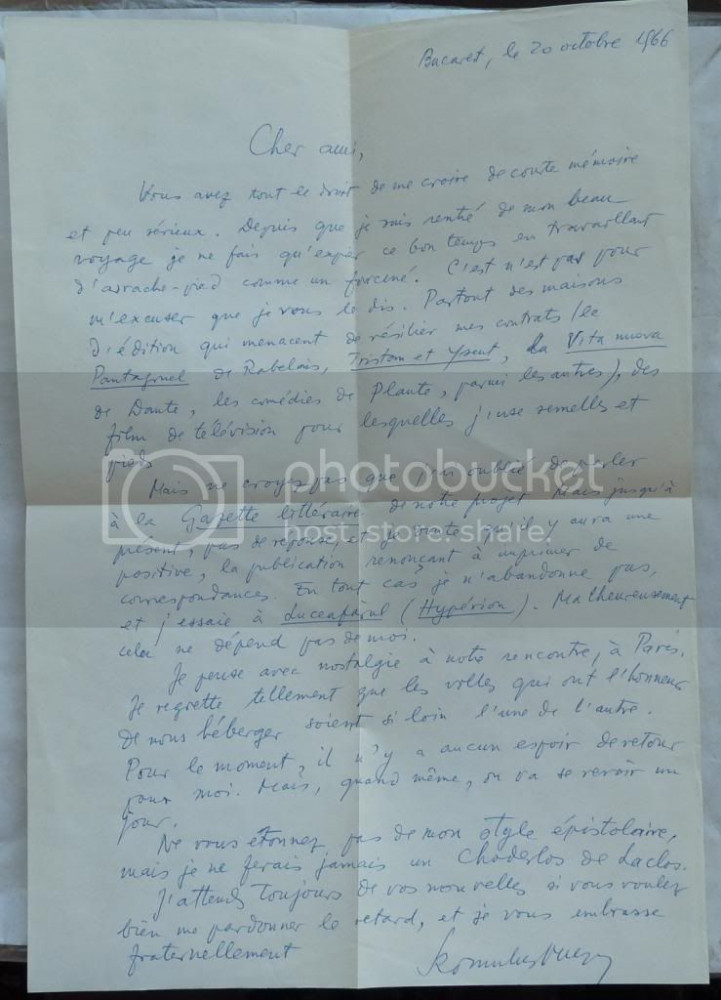 Bucarest, le 20 octobre 1966
Cher ami,
Vous avez tout le droit de me croire de courte mémoire
et peu sérieux. Depuis que je suis rentré de mon beau
voyage je ne fais qu'expier ce bon temps en travaillant
d'arrache-pied comme un forcené. C'est n'est pas pour
m'excuser que je vous le dis. Partout des maisons
d'édition qui menacent de résilier mes contrats (le
Pantagruel de Rabelais, Tristan et Yseut, La Vita nuova
de Dante, les comédies de Plaute, parmi les autres), des
film de télévision pour lesquelles j'use semelles et
pieds.
Mais ne croyez pas que j'ai oublié de parler
à la Gazette littéraire de notre projet. Mais jusqu'à
présent, pas de réponse, et je doute qu'il y aura une
positive, la publication renonçant à imprimer de
correspondances. En tout cas je n'abandonne pas,
et j'essaie à Luceafărul (Hypérion). Malheureusement
cela ne dépend pas de moi.
Je pense avec nostalgie à notre rencontre, à Paris.
Je regrette tellement que les villes qui ont l'honneur
de nous héberger soient si loin l'une de l'autre.
Pour le moment, il n'y a aucun espoir de retour
pour moi. Mais, quand même, on va se revoir un
jour.
Ne vous étonnez pas de mon style épistolaire,
mais je ne serais jamais un Choderlos de Laclos.
J'attends toujours de vos nouvelles si vous voulez
bien me pardonner le retard, et je vous embrasse
fraternellement
Romulus
photobucket
host. store. share.